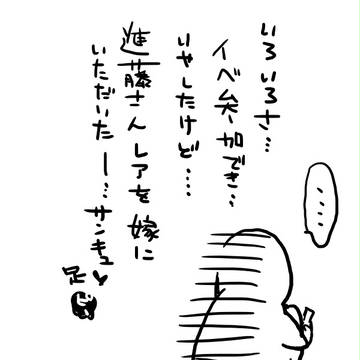 いろいろさ…
イベ参加でき…
いやしたけど……
進藤さんレアを嫁に
いただいたー…サンキュ♥
足
……